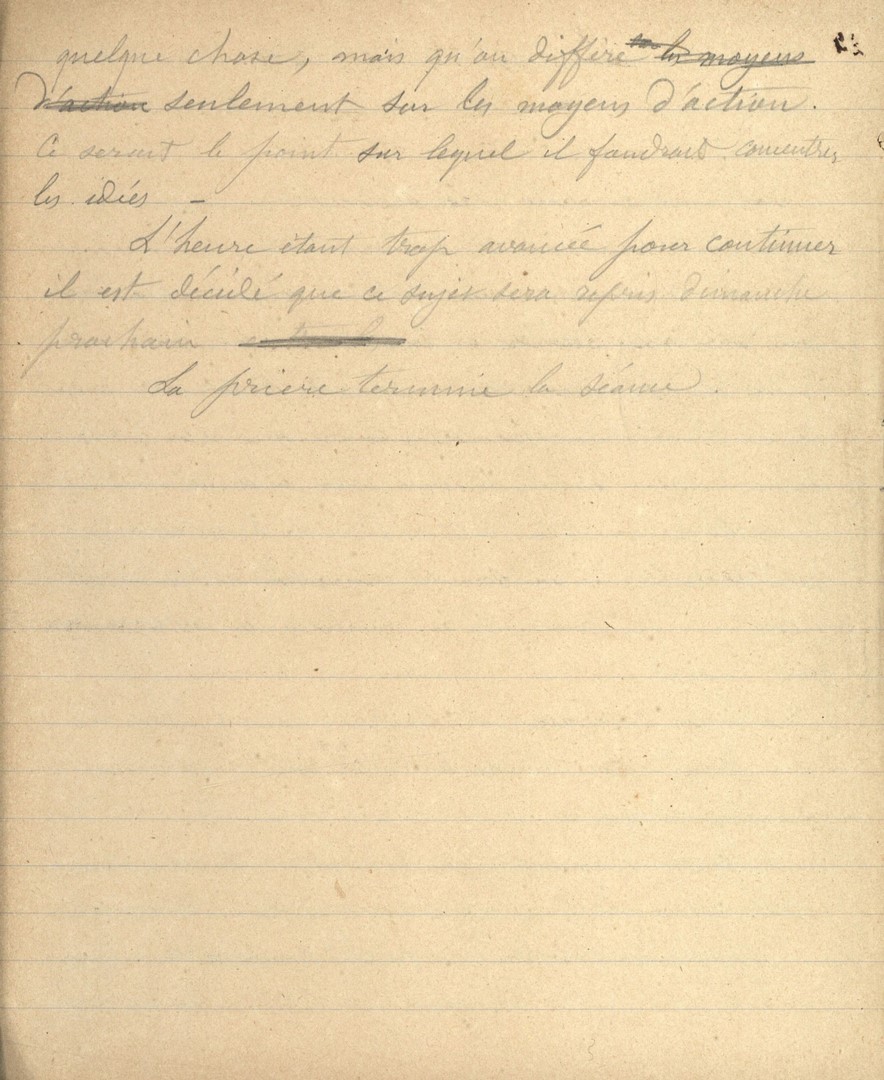 quelque chose, mais qu'on diffère sur les moyens
d'action seulement sur les moyens d'action.
Ce serait le point sur lequel il faudrait concentrer
les idées –
L'heure étant trop avancée pour continuer
il est décidé que ce sujet sera repris dimanche
prochain
La prière termine la séance.